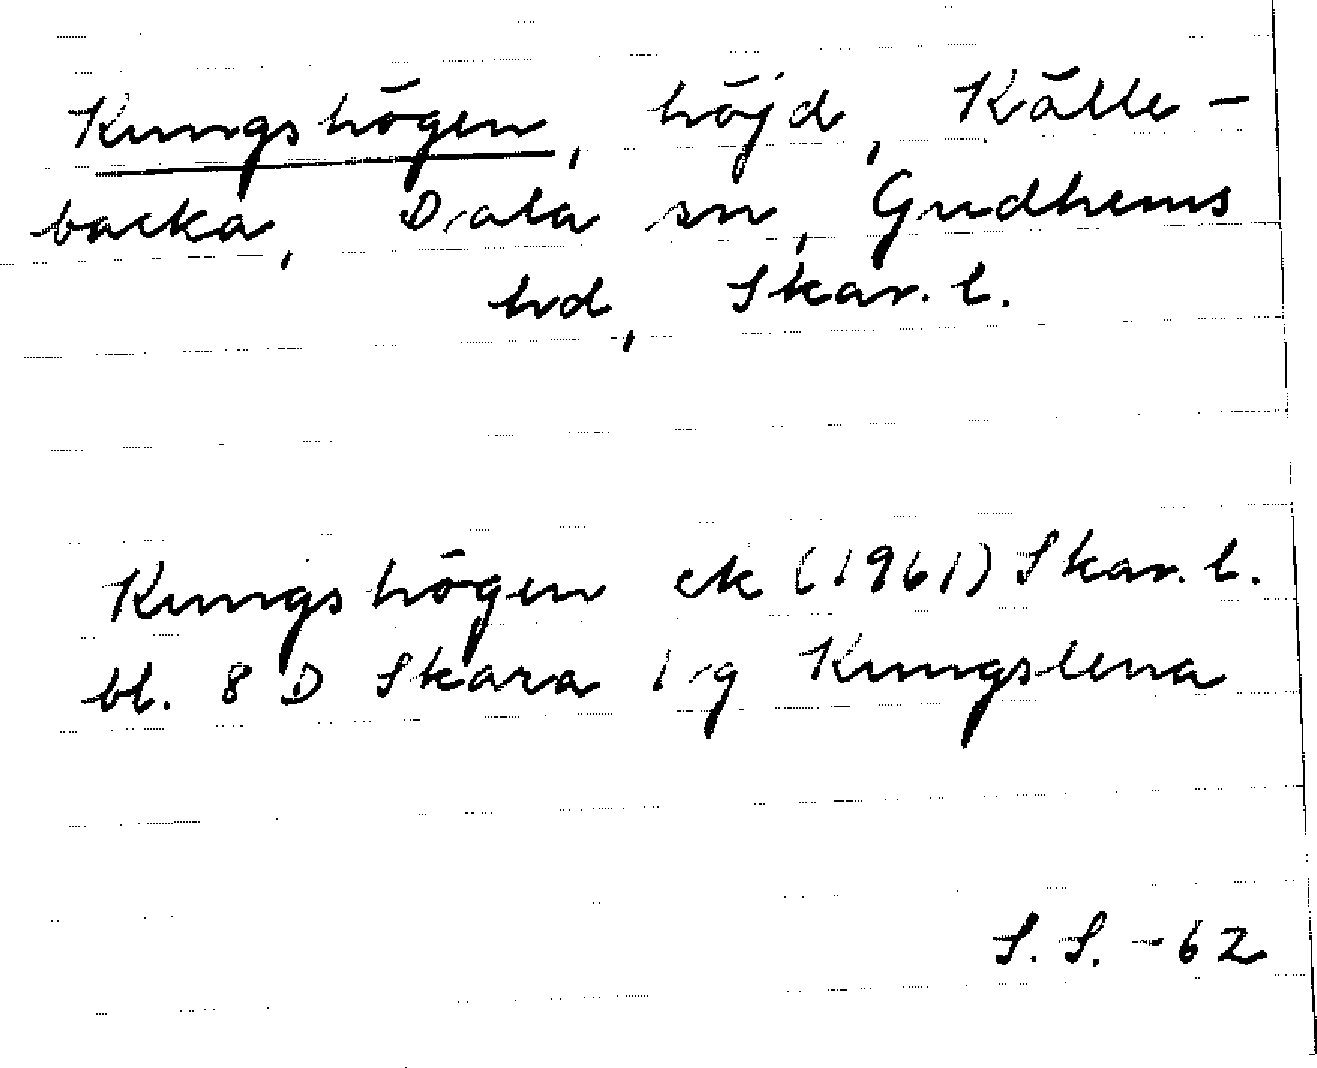 Kungshögen, höjd, Källe-
backa, Dala sn, Gudhems
hd, Skar. l.
Kungshögen ek (1961) Skar. l.
bl. 8 D Skara 1 g Kungslena
S. S. -62